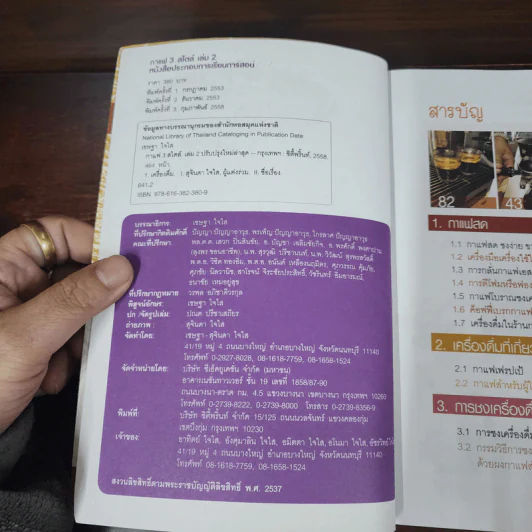 กาแฟ 3 สไตล์ เล่ม 2
หนังสือประกอบการเรียนการสอน
ราคา 380 บาท
พิมพ์ครั้งที่ 1 กรกฎาคม 2553
พิมพ์ครั้งที่ 2 ธันวาคม 2553
พิมพ์ครั้งที่ 3 กุมภาพันธ์ 2558
ข้อมูลทางบรรณานุกรมของสำนักหอสมุดแห่งชาติ
National Library of Thailand Cataloging in Publication Data
เชษฐา ใจใส
กาแฟ 3 สไตล์ เล่ม 2 ปรับปรุงใหม่ล่าสุด -- กรุงเทพฯ : ซิตี้พริ้นท์, 2558.
หน้า.
1. เครื่องดื่ม. I. สุจินดา ใจใส, ผู้แต่งร่วม. II. ชื่อเรื่อง.
641.2
ISBN: 978-616-382-360-9
บรรณาธิการ: เชษฐา ใจใส
ที่ปรึกษากิตติมศักดิ์ ปัญญา ปัญญาอาวุธ, พรเพ็ญ ปัญญาอาวุธ, ไกรอาศ ปัญญาอาวุธ
คณะที่ปรึกษา:
ที่ปรึกษากฎหมาย วรพล อภิชาติวรกุล
พิสูจน์อักษร: เชษฐา ใจใส
ปก /จัดรูปเล่ม: ปณต ปรีชาเสถียร
ถ่ายภาพ : สุจินดา ใจใส
จัดทำโดย: เชษฐา - สุจินดา ใจใส
41/19 หมู่ 4 ถนนบางใหญ่ อำเภอบางใหญ่ จังหวัดนนทบุรี 11140
โทรศัพท์ 0-2927-8028, 08-1618-7759, 08-1658-1524
จัดจำหน่ายโดย: บริษัท ซีเอ็ดยูเคชั่น จำกัด (มหาชน)
อาคารเนชั่นทาวเวอร์ ชั้น 19 เลขที่ 1858/87-90
ถนนบางนา-ตราด กม. 4.5 แขวงบางนา เขตบางนา กรุงเทพฯ 10260
โทรศัพท์ 0-2739-8222, 0-2739-8000 โทรสาร 0-2739-8356-9
พิมพ์ที่: บริษัท ซิตี้พริ้นท์ จำกัด 15/125 ถนนนวลจันทร์ แขวงคลองกุ่ม
เขตบึงกุ่ม กรุงเทพฯ 10230
เจ้าของ: อาทิตย์ ใจใส, อังศุมาลิน ใจใส,
41/19 หมู่ 4 ถนนบางใหญ่ อำเภอบางใหญ่ จังหวัดนนทบุรี 11140
โทรศัพท์ 08-1618-7759, 08-1658-1524
สงวนลิขสิทธิ์ตามพระราชบัญญัติลิขสิทธิ์ พ.ศ. 2537
สารบัญ
82
43
1. กาแฟสด
1.1 กาแฟสด ชงง่าย
1.2 เครื่องมือเครื่องใช้
1.3 การกลั่นกาแฟ
1.4 การตีโฟม
1.5 กาแฟโบราณ
1.6
1.7 เครื่องดื่มในร้าน
2. เครื่องดื่มที่เกี่ยว
2.1 กาแฟเฟรปเป้
2.2 กาแฟสำหรับ
3. การชงเครื่องดื่ม
3.1 การชงเครื่องดื่ม
3.2 กรรมวิธีการชง
ด้วยผงกาแฟ